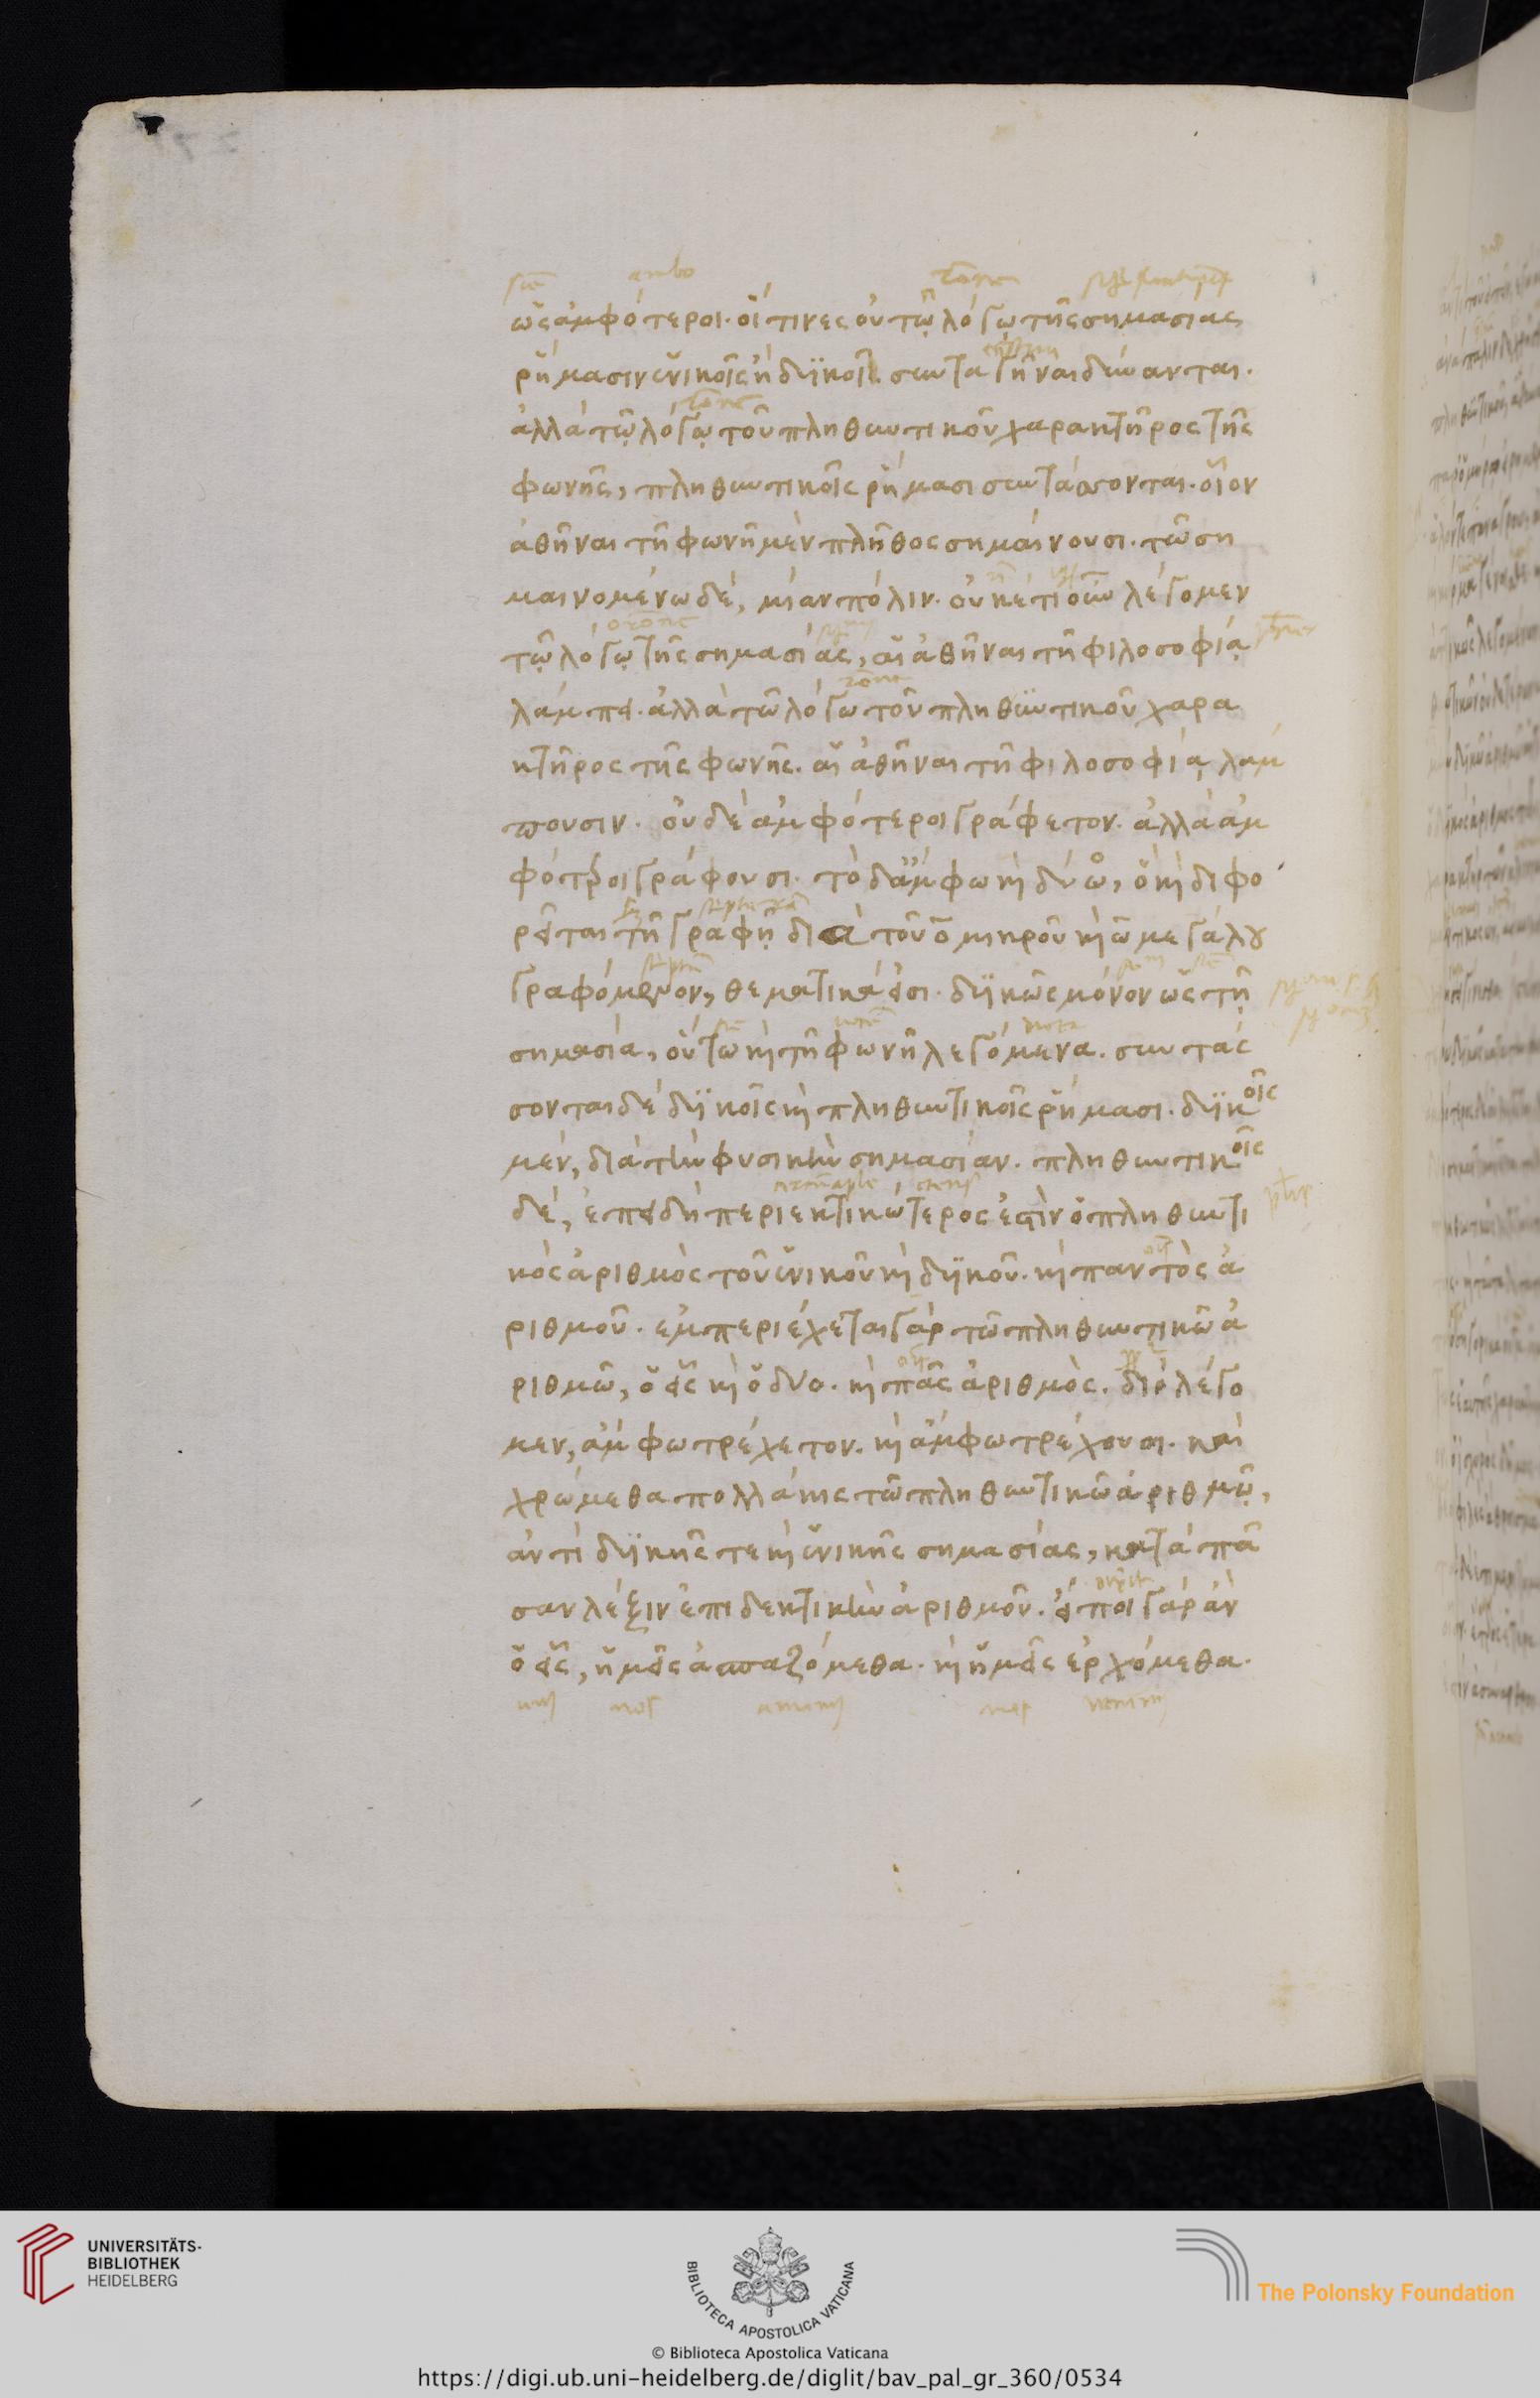 ambo
ὡς ἀμφότεροι· οἵ τινες οὐ τῷ λόγῳ τῆς σημασίας
ῥήμασιν ἑνικοῖς ἢ δυϊκοῖς συνταγῆναι δύνανται·
ἀλλὰ τῷ λόγῳ τοῦ πληθυντικοῦ χαρακτῆρος τῆς
φωνῆς, πληθυντικοῖς ῥήμασι συντάσσονται· οἷον
ἀθῆναι τῆ φωνῆ μὲν πλῆθος σημαίνουσι· τῶ ση
μαινομένω δὲ, μίαν πόλιν· οὐκέτι οὖν λέγομεν
τῷ λόγῳ τῆς σημασίας, αἱ ἀθῆναι τῆ φιλοσοφίᾳ
λάμπει· ἀλλὰ τῶ λόγω τοῦ πληθυντικοῦ χαρα
κτῆρος τῆς φωνῆς· αἱ ἀθῆναι τῆ φιλοσοφίᾳ λάμ
πουσιν· οὐδὲ ἀμφότεροι γράφετον· ἀλλὰ ἀμ
φότεροι γράφουσι· τὸ δ' ἄμφω καὶ δύω, ὃ καὶ διφο
ρεῖται τῆ γραφῇ διὰ τοῦ ο μικροῦ καὶ ω μεγάλου
γραφόμενον, θεματικά εἰσι· δυϊκῶς μόνον ὡς τῇ
σημασία, οὕτω καὶ τῆ φωνῆ λεγόμενα· συντάσ
σονται δὲ δυϊκοῖς καὶ πληθυντικοῖς ῥήμασι· δυϊκοῖς
μὲν, διὰ τὴν φυσικὴν σημασίαν· πληθυντικοῖς
δὲ, ἐπειδὴ περιεκτικώτερος ἐστὶν ὁ πληθυντι
κὸς ἀριθμὸς τοῦ ἑνικοῦ καὶ δυϊκοῦ· καὶ παντὸς ἀ
ριθμοῦ· ἐμπεριέχεται γὰρ τῶ πληθυντικῶ ἀ
ριθμῶ, ὁ εἷς καὶ ὁ δύο· καὶ πᾶς ἀριθμὸς· διὸ λέγο
μεν, ἄμφω τρέχετον· καὶ ἄμφω τρέχουσι· καὶ
χρώμεθα πολλάκις τῶ πληθυντικῶ ἀριθμῷ,
ἀντὶ δυϊκῆς τε καὶ ἑνικῆς σημασίας, κατὰ πᾶ
σαν λέξιν ἐπιδεκτικὴν ἀριθμοῦ· εἴποι γὰρ ἂν
ὁ εἷς, ἡμεῖς ἀσπαζόμεθα· καὶ ἡμεῖς ἐρχόμεθα·
UNIVERSITÄTS-
BIBLIOTHEK
HEIDELBERG
BIBLIOTECA APOSTOLICA VATICANA
The Polonsky Foundation
© Biblioteca Apostolica Vaticana
https://digi.ub.uni-heidelberg.de/diglit/bav_pal_gr_360/0534